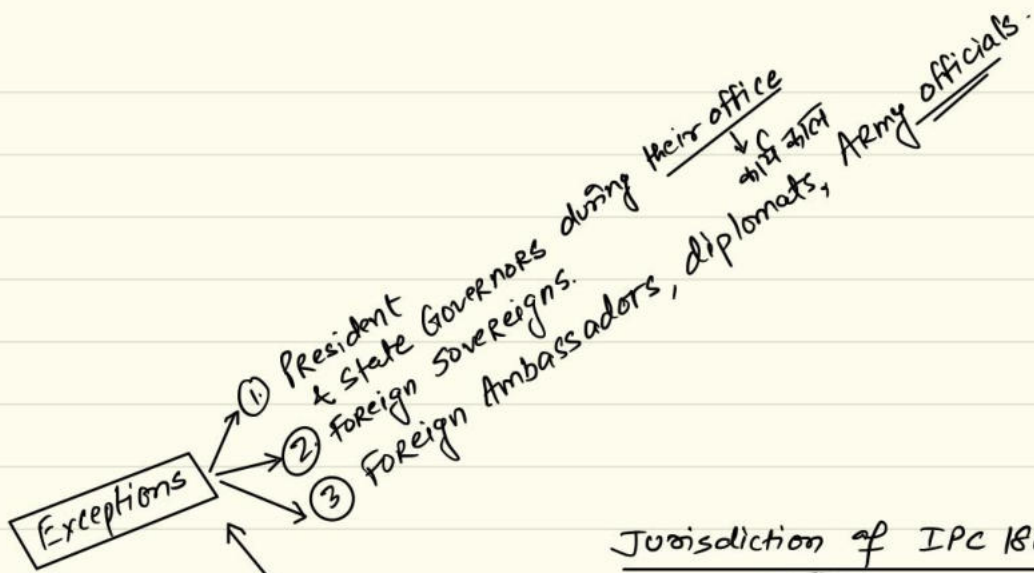 ① President
& State Governors during their office
कार्य काल
② Foreign Sovereigns.
③ Foreign Ambassadors, diplomats, Army officials.
Exceptions
Jurisdiction of IPC 18